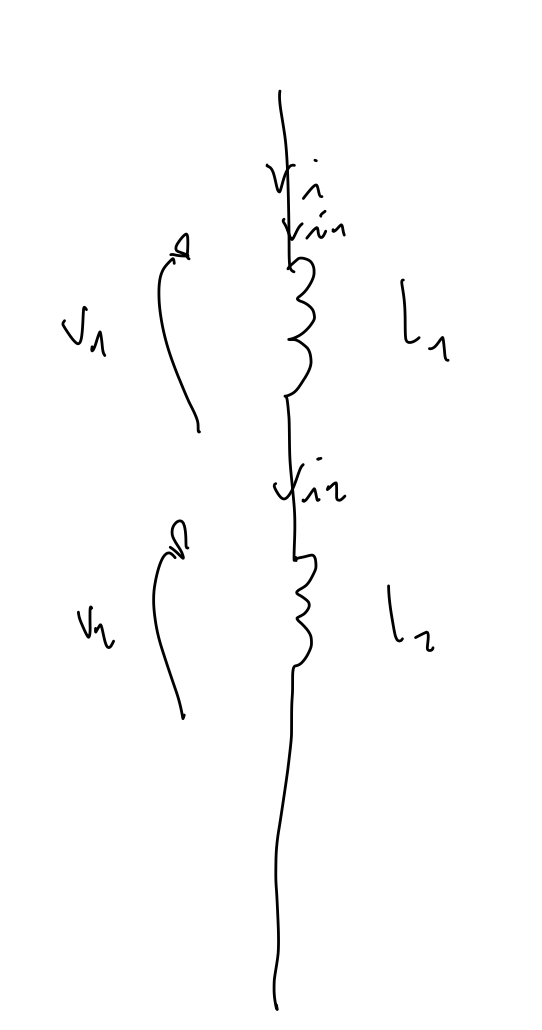 i
i1
v1
L1
i2
v2
L2